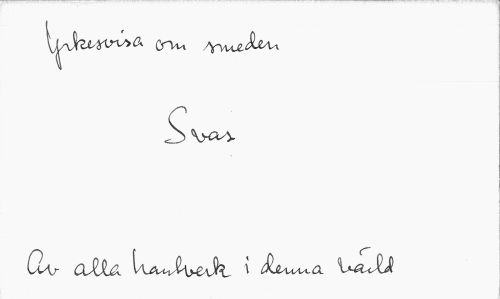 Yrkesvisa om smeden
Svas
Av alla hantverk i denna värld